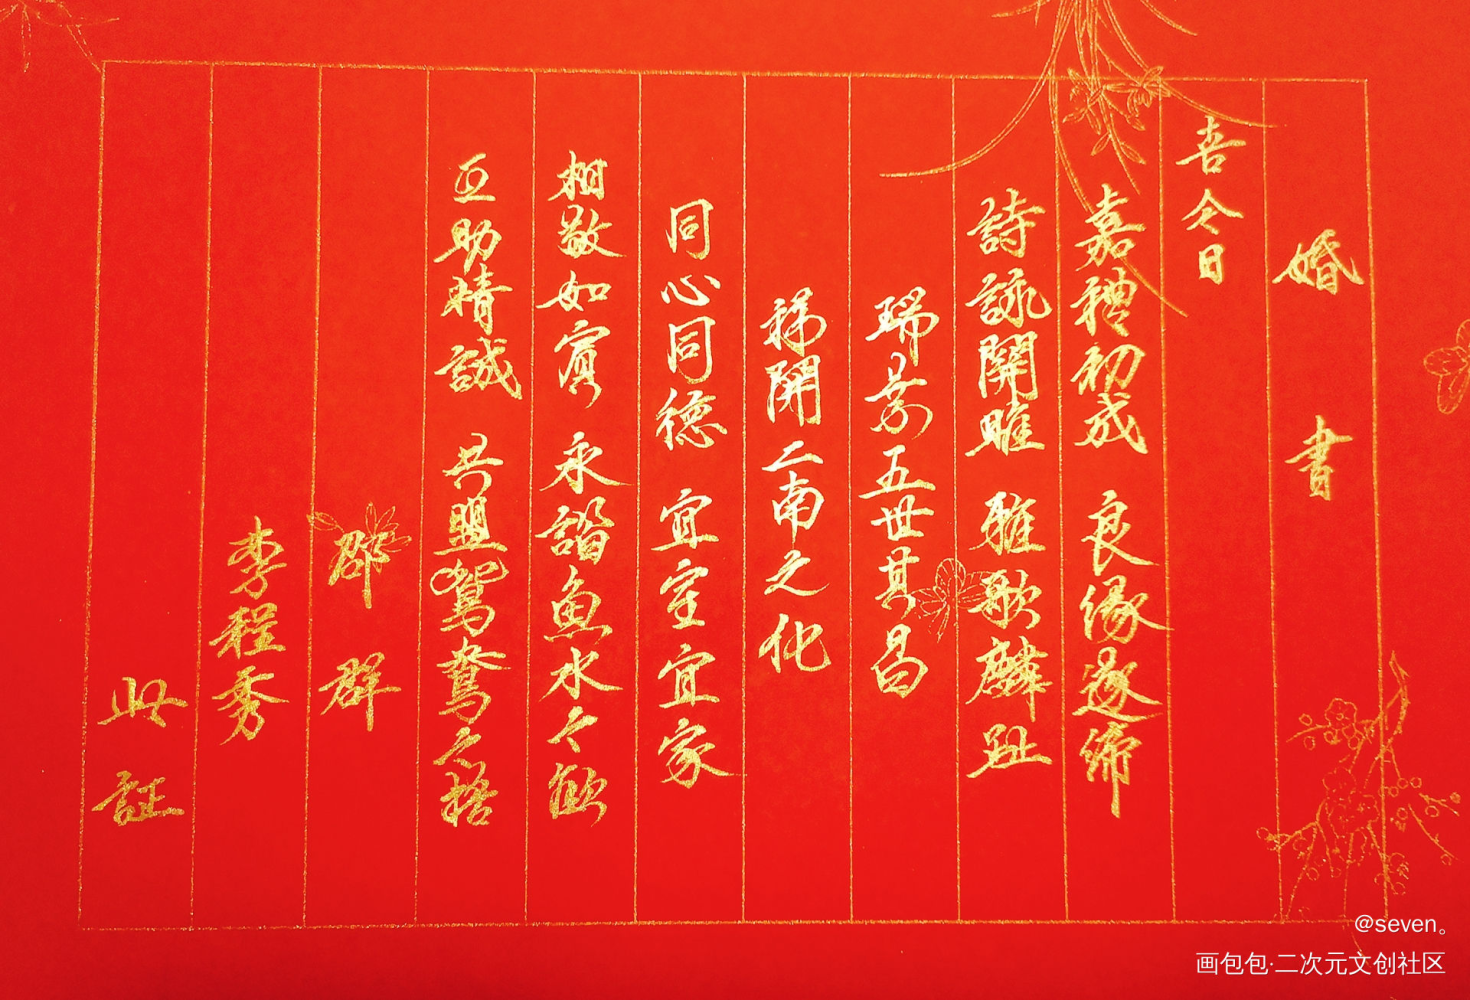 婚書
喜今日
嘉禮初成 良緣遂締
詩詠關雎 雅歌麟趾
瑞景五世其昌
祥開二南之化
同心同德 宜室宜家
相敬如賓 永諧魚水之歡
互助精誠 共盟鴛鴦之誓
邵群
李程秀
此証
@seven。
画包包·二次元文创社区